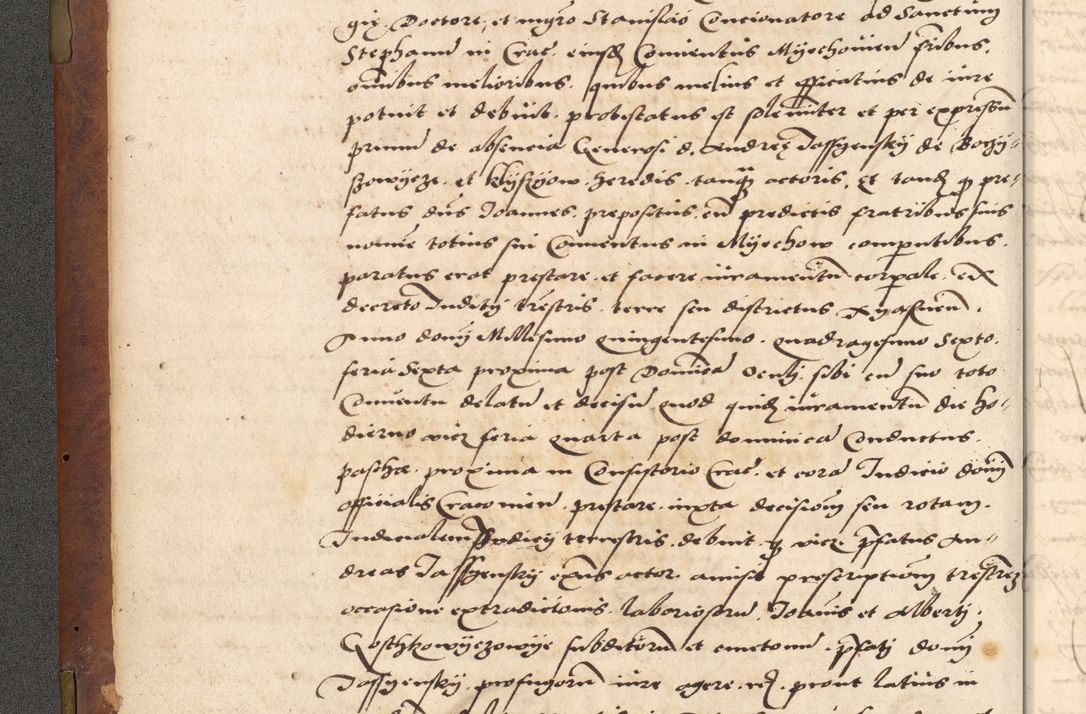 gię. Doctore, et mgro Stanislao Concionatore ad Sanctum
Stephanū in Crac. eiusdē Conuentus Myechouien̄ fribus,
omnibus melioribus. quibus melius et efficatius de iure
potuit et debuit. protestatus est solenniter et per expressū
primū de absencia Generosi d. Andreę Jassyensky de
szowycze. et klyszyow. heredis. tanq̄ actoris, et tandē q pre-
fatus dn̄s Joannes. prepositus. cū predictis fratribus suis
nomine totius sui Conuentus in Myechow comparentibus.
paratus erat prestare. et facere iuramentū corporale. ex
decreto Judicij trēstris. terre seu districtus
Anno domī Millesimo quingentesimo. quadragesimo Sexto.
feria Sexta proxima post Dominicā Oculj. sibi cū suo toto
Conuentu delatū et decisū quod quidē iuramentū die ho-
dierno vicz feria quarta post dominicā Conductus.
paschæ. proxima in Consistorio Crac. et corā Judicio domī
officialis Cracouien̄. prestare. iuxta decisionē seu rotam.
Judicialem Judicij terrestris. debuit. q vicz. p̄fatus An-
dreas Jassyensky exn̄s actor. amisit proscriptionē trēstrez
occasione extradictionis. laboriosorū Joannis et Alberti.
Goschkowyczowye subditorū et cmetonū. p̄fatj domī
Jassyensky. profugorū iure agere. rē. prout latius in